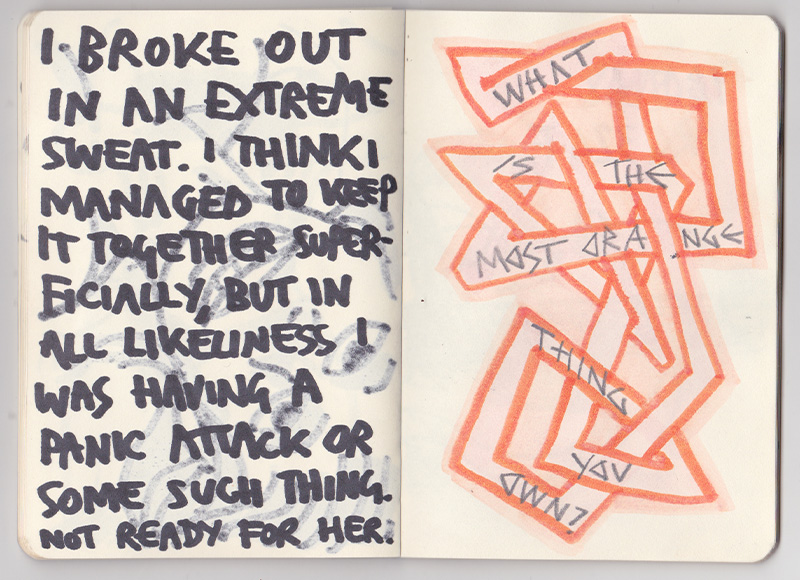 I BROKE OUT
IN AN EXTREME
SWEAT. I THINK I
MANAGED TO KEEP
IT TOGETHER SUPER-
FICIALLY, BUT IN
ALL LIKELINESS I
WAS HAVING A
PANIC ATTACK OR
SOME SUCH THING.
NOT READY FOR HER.
WHAT
IS THE
MOST ORANGE
THING
YOU
OWN?